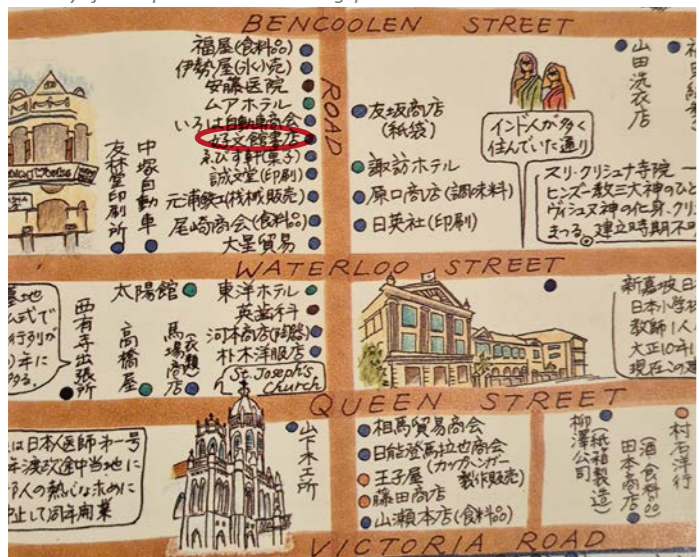 BENCOOLEN STREET
福屋(食料品)
伊勢屋(氷小売)
安藤医院
ムアホテル
いろは自動車商会
好文館書店
ゑびす軒(菓子)
誠文堂(印刷)
元浦鉄工(桟械販売)
尾崎商会(食料品)
大星貿易
中塚自動車
友林堂印刷所
ROAD
友坂商店
(紙袋)
諏訪ホテル
原口商店(調味料)
日英社(印刷)
インド人が多く
住んでいた通り
山田洗衣店
スリ・クリシュナ寺院
ヒンズー教三大神のひ
ヴィシュヌ神の化身、クリ
まつる。建立時期不
WATERLOO STREET
墓地
公式で
行列が
年に
西有寺出張所
太陽館
高橋屋
馬場商店
(衣類)
東洋ホテル
英歯科
河本商店(陶器)
朴木洋服店
St. Joseph's
Church
新嘉坡日
日本小学校
教師1人
大正10年
現在この
QUEEN STREET
は日本人医師第一号
年渡欧途中当地に
邦人の熱心な求めに
中止して同年開業
山下木工所
相馬貿易商会
日能登馬拉也商会
(カッパンガー
製作販売)
王子屋
藤田商店
山瀬本店(食料品)
柳澤公司
(紙箱製造)
田本商店
(酒、食料品)
村石洋行
VICTORIA ROAD